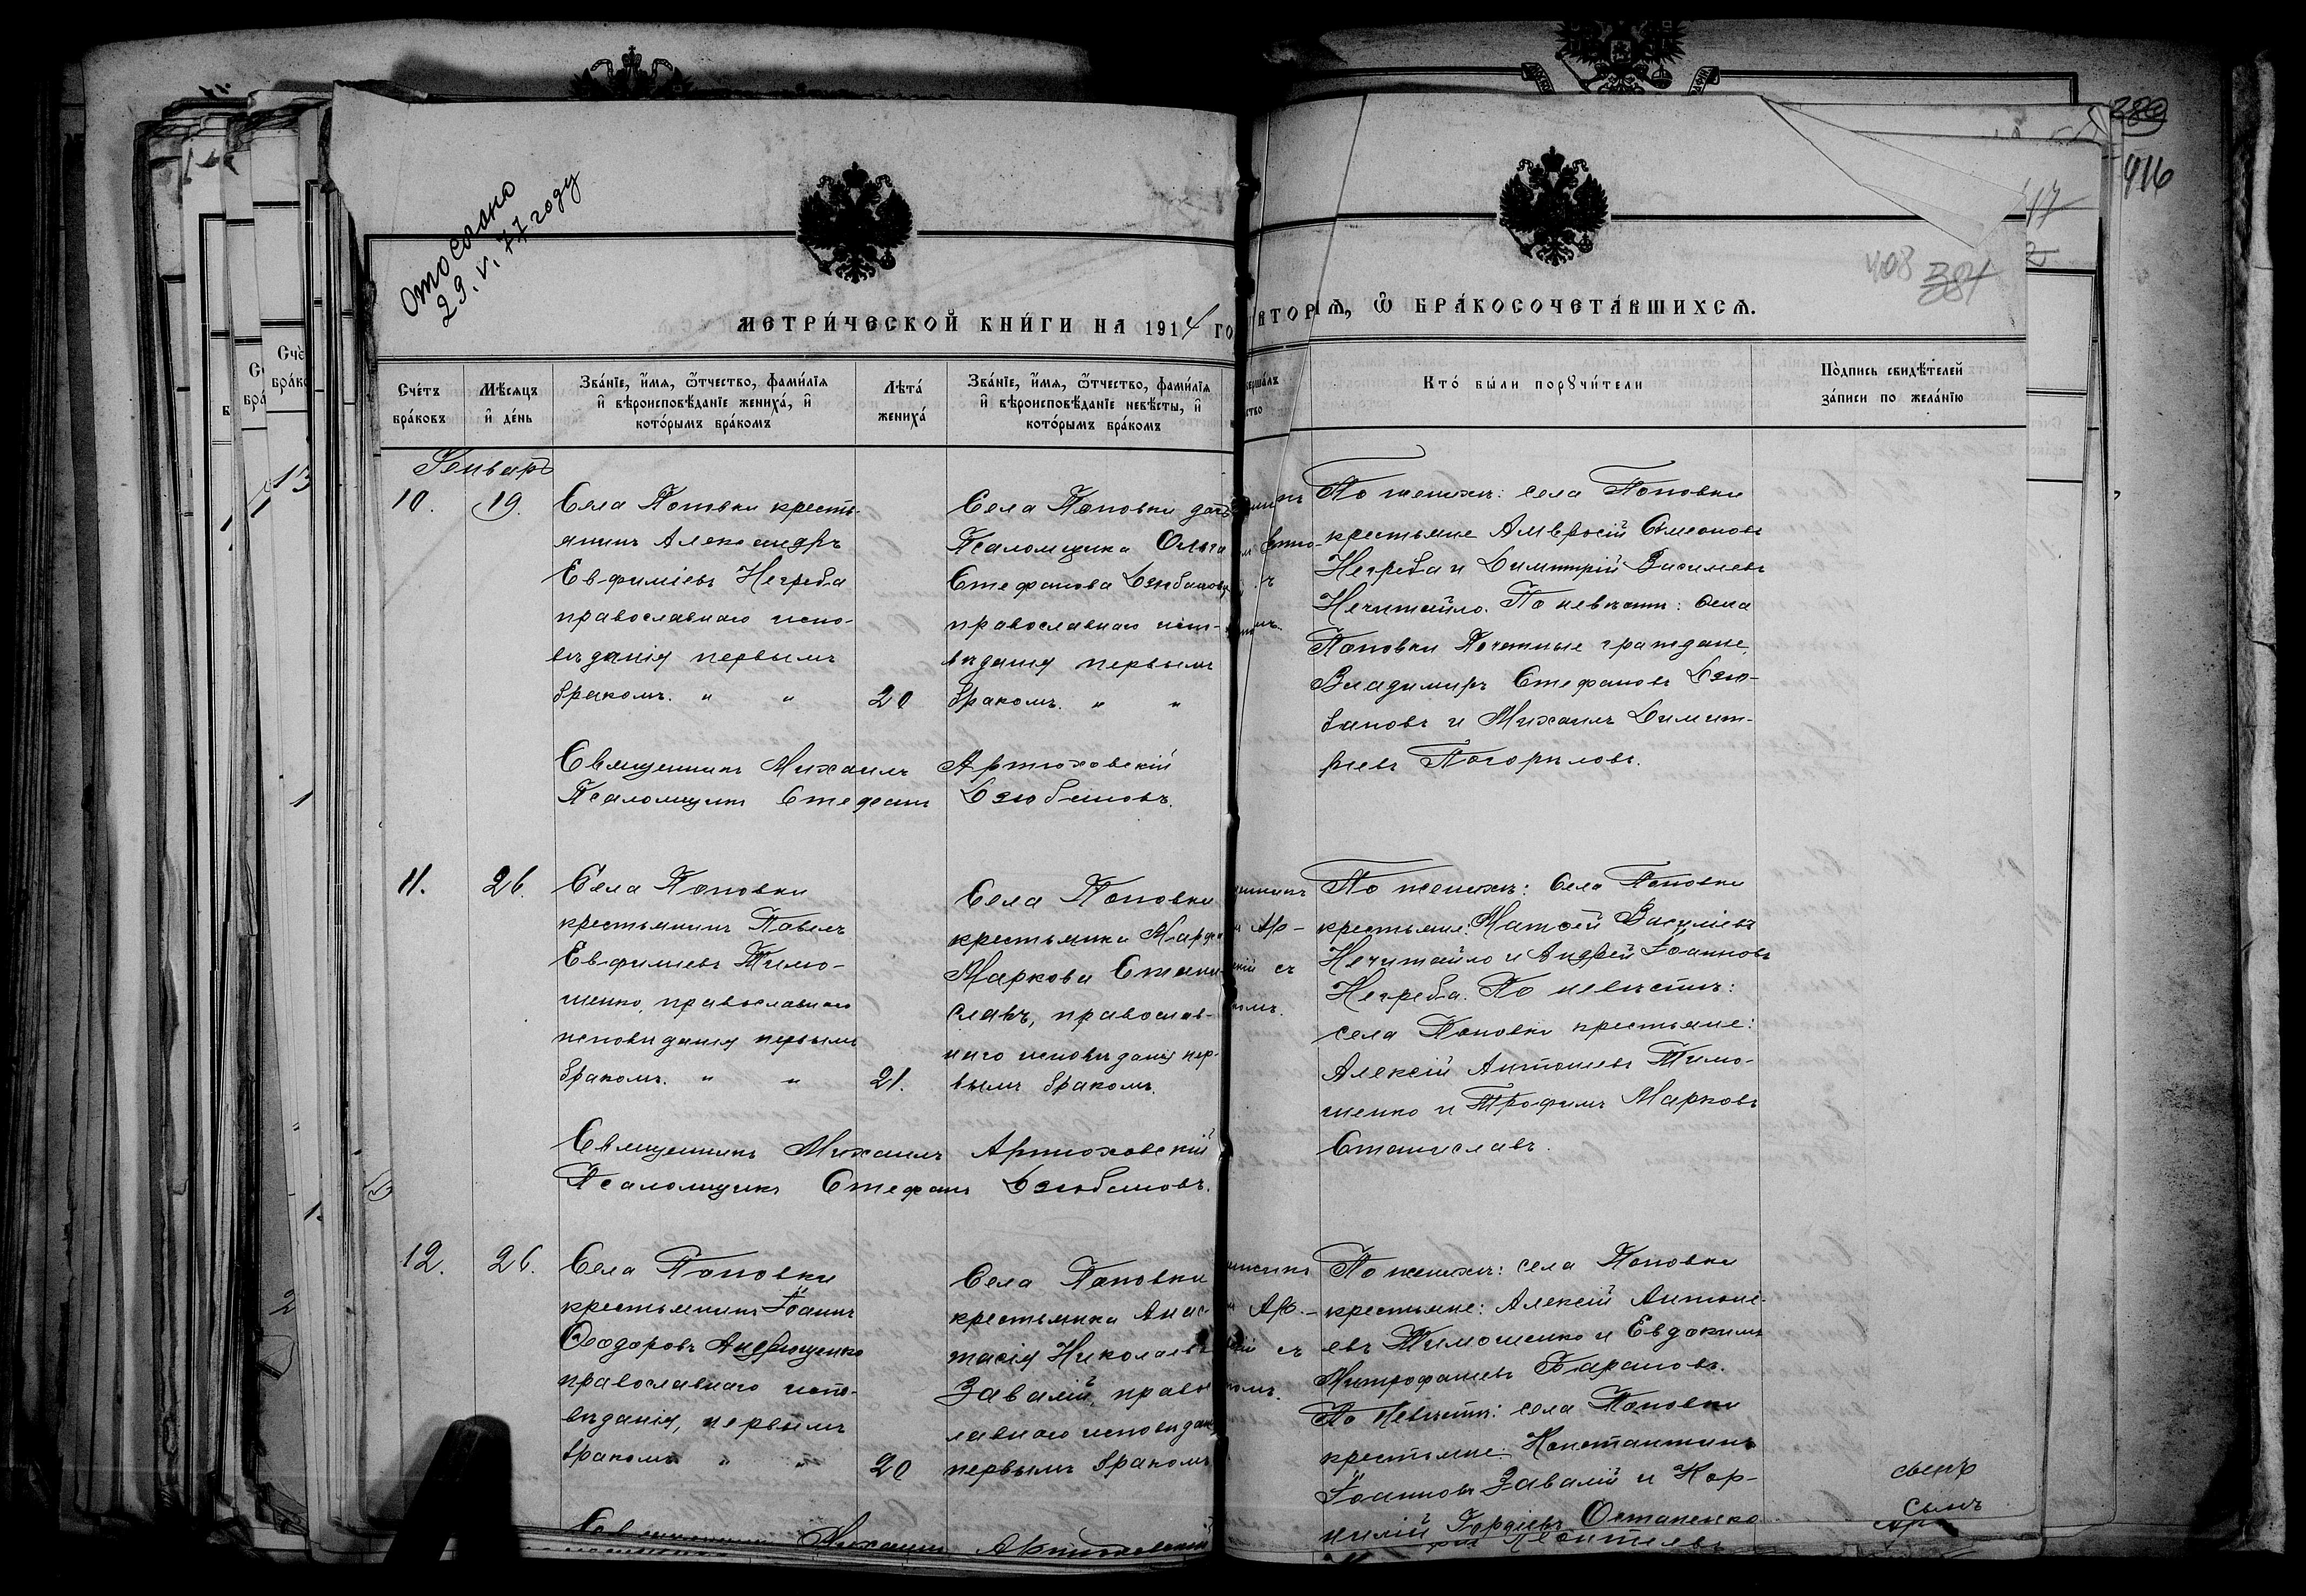 отослано
29. V. 77 году
МЕТРИ́ЧЕСКОЙ КНИ́ГИ НА 1914 ГО
ВТОРꙖ, Ѽ БРА́КОСОЧЕТА́ВШИХСѦ.
916
408 384
Сче́тъ бра́ковъ
Мѣ́сяцъ и҆ де́нь
Зва́нїе, и҆́мя, ѻ҆́тчество, фами́лїя и҆ вѣроисповѣ́данїе жениха́, и҆ кото́рымъ бра́комъ
Лѣта́ жениха́
Зва́нїе, и҆́мя, ѻ҆́тчество, фами́лїя и҆ вѣроисповѣ́данїе невѣ́сты, и҆ кото́рымъ бра́комъ
Кто́ бы́ли порꙋчи́тели
По́дпись свидѣ́телей за́писи по жела́нїю
Генварь
10.
19.
Села Поповки кресть-
янинъ Александръ
Евфиміевъ Негреба
православнаго испо-
вѣданія первымъ
бракомъ. " "
20
Села Поповки дочь
Псаломщика Ольга
Стефанова Дзюбанова
православнаго испо-
вѣданія первымъ
бракомъ. " "
По женихѣ: села Поповки
крестьяне Амвросій Симеоновъ
Негреба и Димитрій Василіевъ
Нечитайло. По невѣстѣ: села
Поповки Почетные граждане
Владимиръ Стефановъ Дзю-
бановъ и Михаилъ Димит-
ріевъ Погориловъ.
Священникъ Михаилъ Артюховскій
Псаломщикъ Стефанъ Дзюбановъ.
11.
26.
Села Поповки
крестьянинъ Павелъ
Евфиміевъ Тимо-
шенко, православнаго
исповѣданія первымъ
бракомъ. " "
21.
Села Поповки
крестьянка Марфа
Маркова Стани-
славъ, православ-
наго исповѣданія пер-
вымъ бракомъ.
По женихѣ: Села Поповки
крестьяне: Матѳей Василіевъ
Нечитайло и Андрей Іоанновъ
Негреба. По невѣстѣ:
села Поповки крестьяне:
Алексій Антоніевъ Тимо-
шенко и Трофимъ Марковъ
Станиславъ.
Священникъ Михаилъ Артюховскій
Псаломщикъ Стефанъ Дзюбановъ.
12.
26.
Села Поповки
крестьянинъ Іоаннъ
Ѳеодоровъ Андрющенко
православнаго испо-
вѣданія, первымъ
бракомъ " "
20
Села Поповки
крестьянка Анас-
тасія Николаева
Завалій, правос
лавнаго исповѣдан
первымъ бракомъ
По женихѣ: села Поповки
крестьяне: Алексій Антоні-
евъ Тимошенко и Евдокимъ
Митрофаніевъ Барановъ.
По невѣстѣ: села Поповки
крестьяне: Константинъ
Іоанновъ Завалій и Кор-
нилій Гордіевъ Остапенко
Михаилъ Артюховскій
сынъ
сынъ